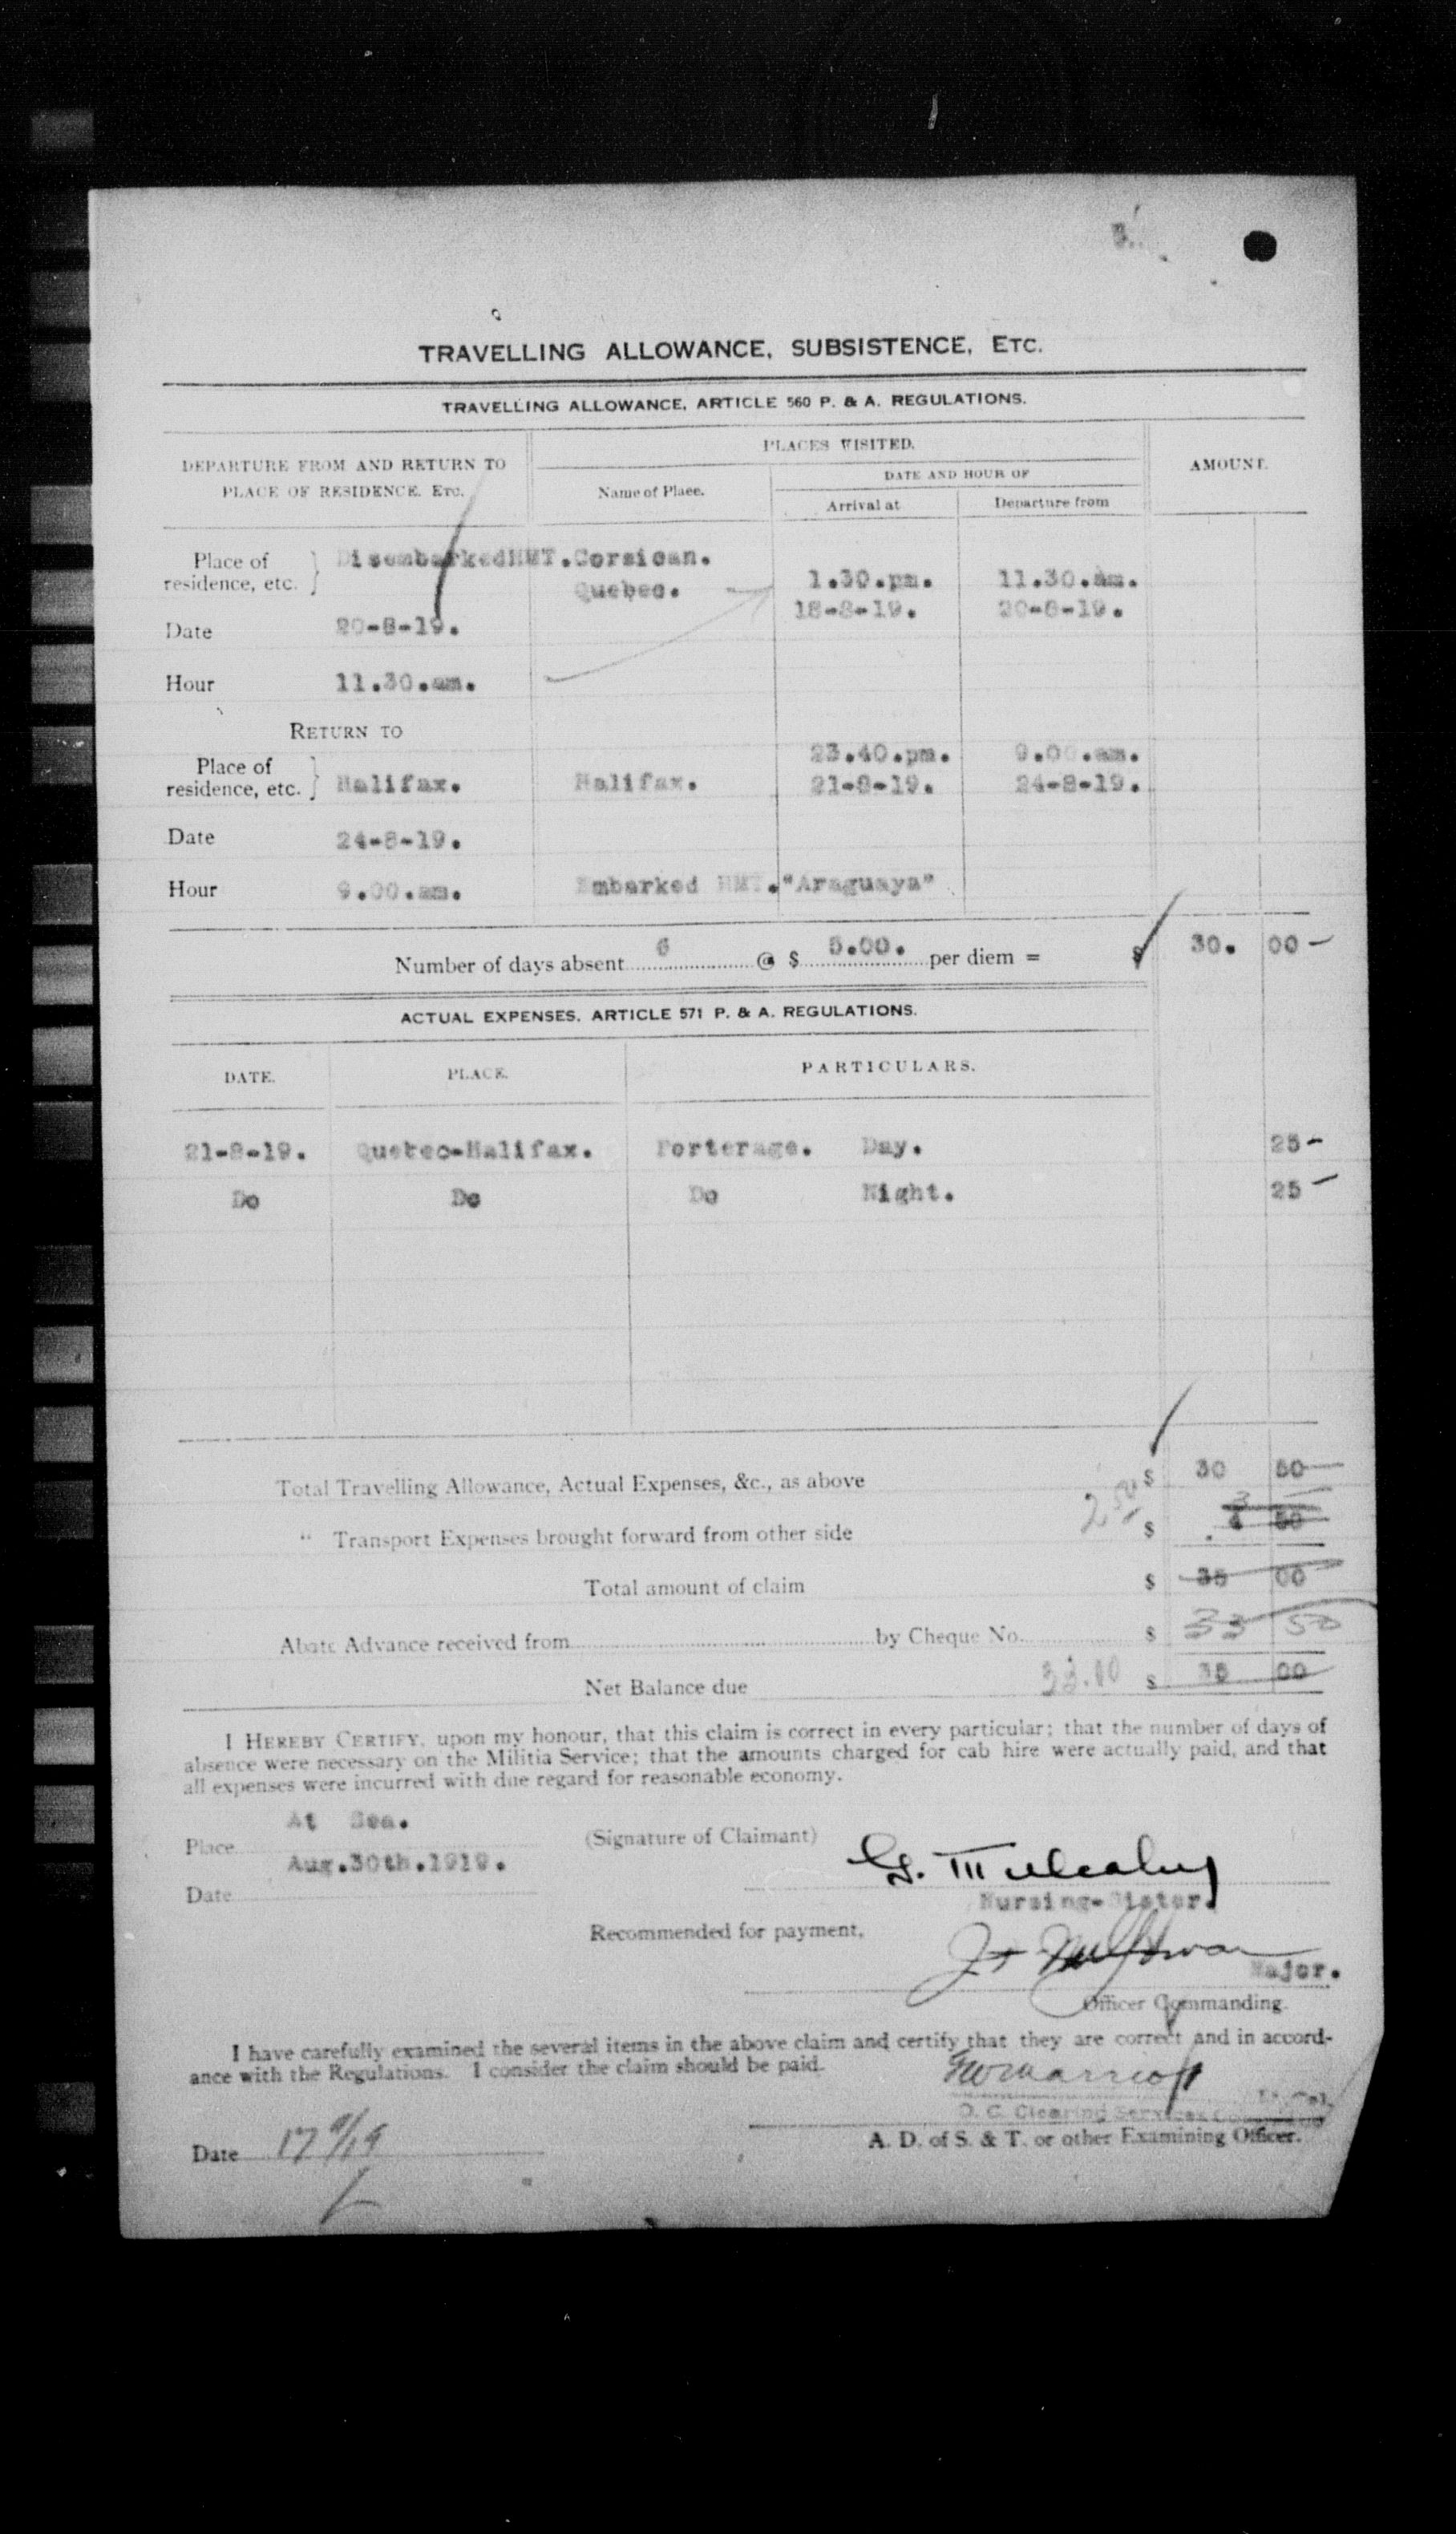 TRAVELLING ALLOWANCE, SUBSISTENCE, ETC.
TRAVELLING ALLOWANCE, ARTICLE 560 P. & A. REGULATIONS.
DEPARTURE FROM AND RETURN TO PLACE OF RESIDENCE, ETC.
PLACES VISITED.
AMOUNT.
Name of Place.
DATE AND HOUR OF
Arrival at
Departure from
Place of residence, etc. } Disembarked HMT. Corsican.
Quebec. 1.30.pm. 11.30.am.
18-8-19. 20-8-19.
Date 20-8-19.
Hour 11.30.am.
RETURN TO
23.40.pm. 9.00.am.
Place of residence, etc. } Halifax. Halifax. 21-8-19. 24-8-19.
Date 24-8-19.
Hour 9.00.am. Embarked HMT."Araguaya"
Number of days absent 6 @ $ 5.00. per diem = $ 30. 00 -
ACTUAL EXPENSES, ARTICLE 571 P. & A. REGULATIONS.
DATE. PLACE. PARTICULARS.
21-8-19. Quebec-Halifax. Porterage. Day. 25 -
Do Do Do Night. 25 -
Total Travelling Allowance, Actual Expenses, &c., as above $ 30 50
" Transport Expenses brought forward from other side $ 4 50
Total amount of claim $ 35 00
Abate Advance received from by Cheque No. $ 33 50
Net Balance due $ 35 00
I HEREBY CERTIFY, upon my honour, that this claim is correct in every particular; that the number of days of
absence were necessary on the Militia Service; that the amounts charged for cab hire were actually paid, and that
all expenses were incurred with due regard for reasonable economy.
Place At Sea.
(Signature of Claimant) G. Mulcahy
Date Aug.30th.1919.
Nursing-Sister.
Recommended for payment,
Major.
Officer Commanding.
I have carefully examined the several items in the above claim and certify that they are correct and in accord-
ance with the Regulations. I consider the claim should be paid.
Lt. Col.
O. C. Clearing Services
Date 17 9/19
A. D. of S. & T. or other Examining Officer.